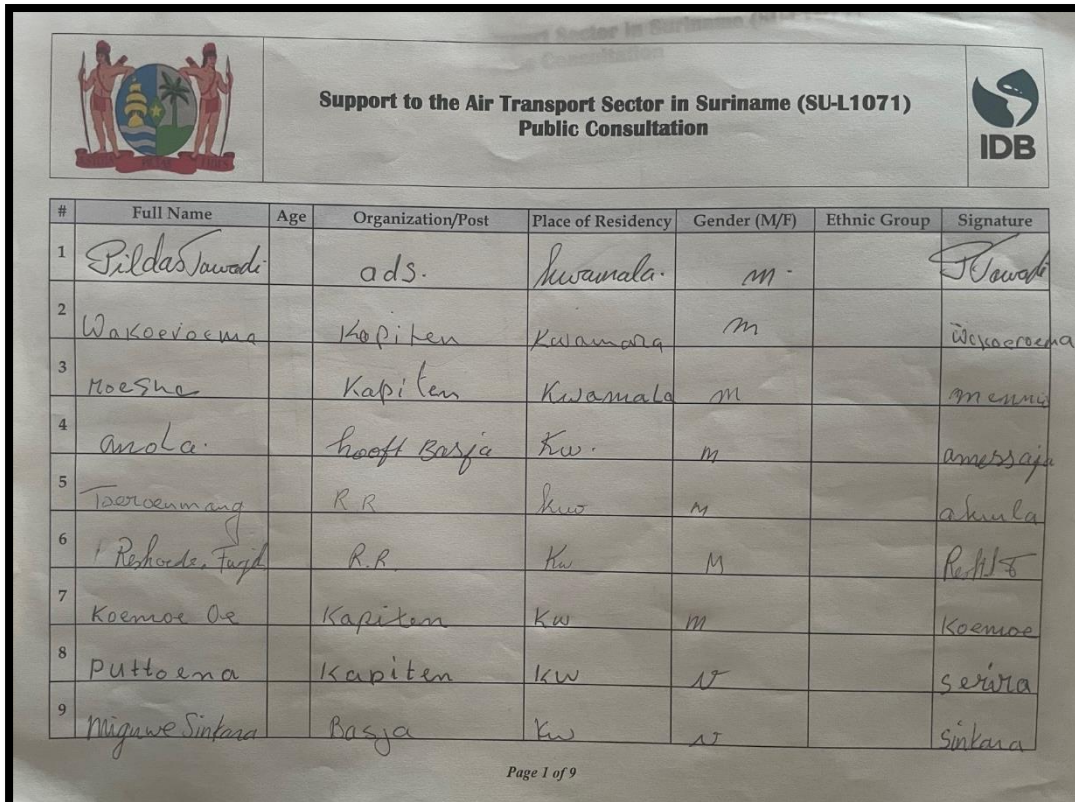 Support to the Air Transport Sector in Suriname (SU-L1071)
Public Consultation
IDB
# Full Name Age Organization/Post Place of Residency Gender (M/F) Ethnic Group Signature
1 Pildas Jawadi ads. Kwamala. m. Jawadi
2 Wakoeroema Kapiten Kwamara m Wakoeroema
3 Moesha Kapiten Kwamala m mennio
4 anola. hooft Basja Kw. M amessaja
5 R.R kw M akula
6 R.R. Kw M
7 Koemoe Oe Kapiten Kw m Koemoe
8 Puttoena Kapiten KW v serira
9 Miguwe Sinkara Basja Kw v Sinkara
Page 1 of 9